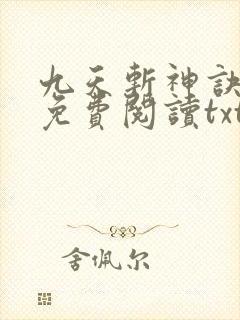 九天斬神訣
免費閱讀txt
舍佩尔